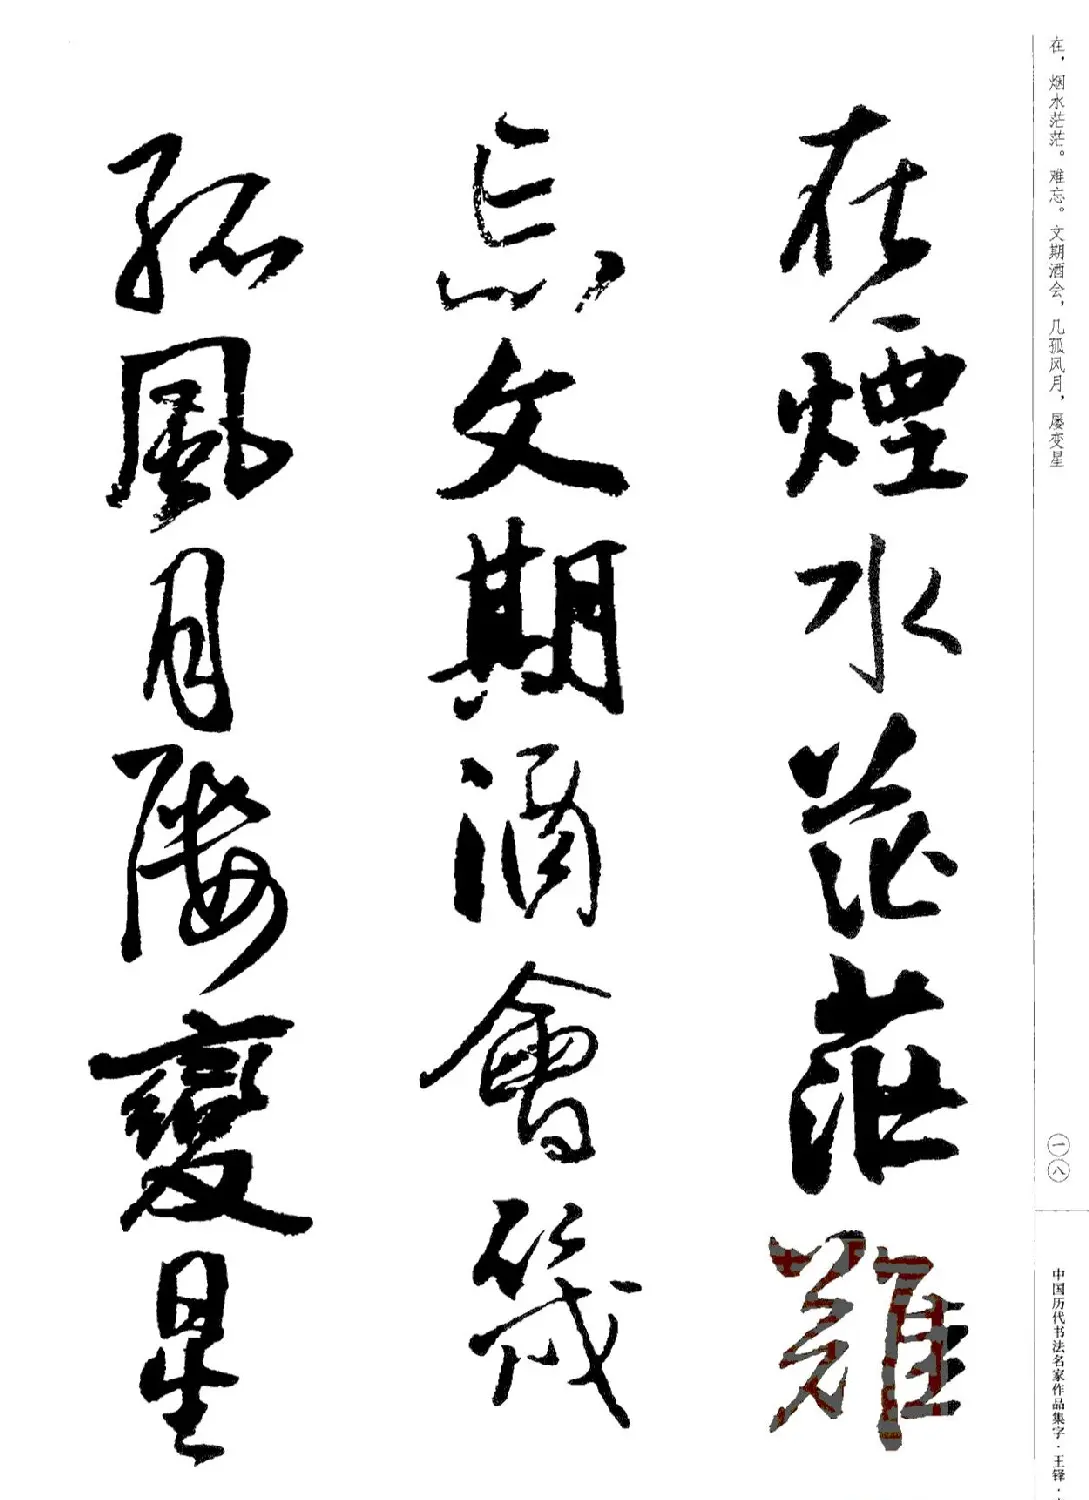 在，烟水茫茫。难忘。文期酒会，几孤风月，屡变星
在煙水茫茫難
忘文期酒會幾
孤風月屢變星
一八
中国历代书法名家作品集字·王铎·